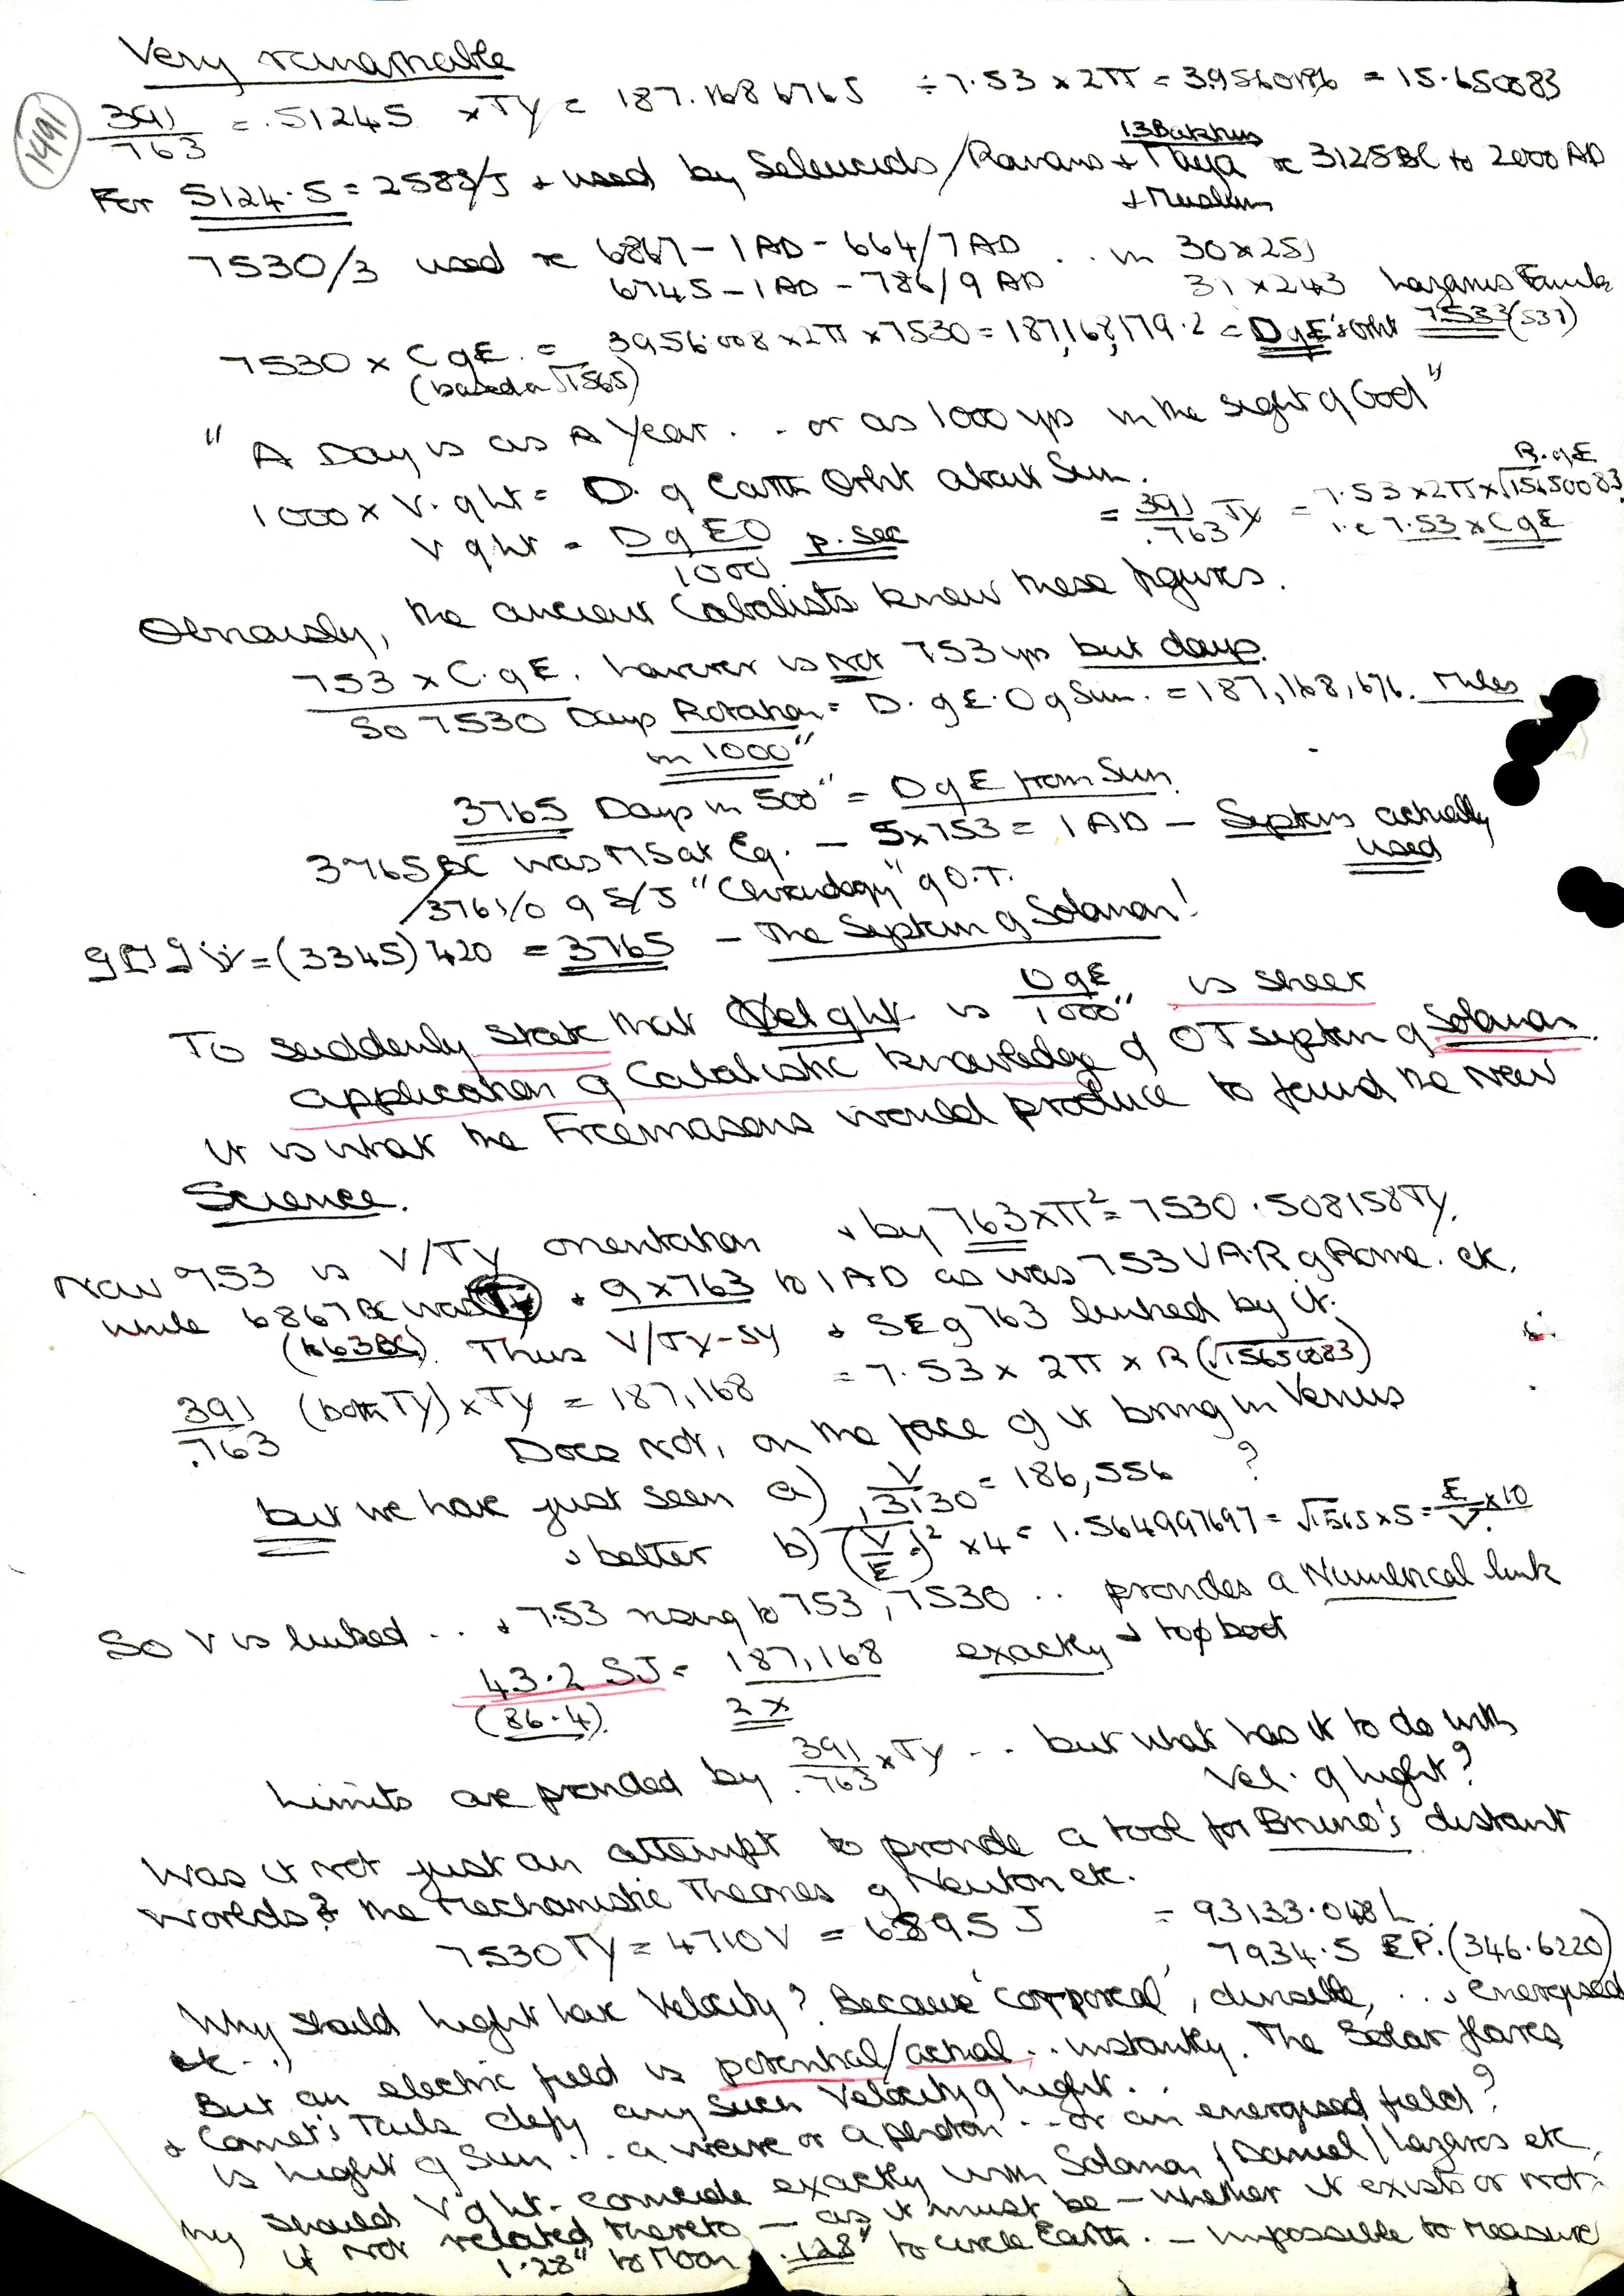 Very remarkable
1491
391/763 = .51245 x TY = 187.1686765 ÷ 7.53 x 2π = 3.9560196 = 15.650083
For 5124.5 = 2583/J + used by Seleucids/Romans + Maya
13 Baktuns
≈ 3125BC to 2000 AD
+ Muslim
7530/3 used ≈ 6867 - 1 AD - 664/7 AD .. in 30x251
6745 - 1 AD - 786/9 AD 31 x 243 Lazarus Tomb
7530 x C of E. = 3956.008 x 2π x 7530 = 187,168,179.2 = D of E's Orbit 7533 (537)
(based on √1565)
" A Day is as A Year . . or as 1000 yrs in the sight of God"
1000 x V. of Lt = D. of Earth Orbit about Sun.
V of Lt = D of EO/1000 p. sec
= 391/.763 TY = 7.53 x 2π x √15650083
R. of E
i.e 7.53 x C of E
Obviously, the ancient Cabalists knew these figures.
753 x C. of E. however is not 753 yrs but days.
So 7530 Days Rotation = D. of E. O of Sun. = 187,168,676. Miles
in 1000"
3765 Days in 500" = D of E from Sun
3765 BC was M5 at Eq. - 5x753 = 1 AD - System actually used
3761/0 of S/J "Chronology" of O.T.
(3345) 420 = 3765 - The System of Solomon!
To suddenly state that Vel of Lt is D of E/1000" is sheer
application of Cabalistic knowledge of OT system of Solomon.
It is what the Freemasons would produce to found the New
Science.
Now 753 is V/TY orientation + by 763 x π² = 7530.508158 TY.
while 6867 BC was TY + 9x763 to 1 AD as was 753 VAR of Rome. etc.
(663BC). Thus V/TY-SY + SE of 763 linked by it.
391/.763 (both TY) x TY = 187,168 = 7.53 x 2π x R (√15650083)
Does not, on the face of it bring in Venus
but we have just seen a) V/.3130 = 186,556 ?
+ better b) (V/E)² x 4 = 1.564997697 = √1565 x 5 = E/V x 10
So V is linked .. + 7.53 rising to 753, 7530 .. provides a Numerical link
43.2 SJ = 187,168 exactly + to boot
(86.4) 2x
Limits are provided by 391/.763 x TY .. but what has it to do with
Vel. of Light?
Was it not just an attempt to provide a tool for Bruno's distant
Worlds? + the Mechanistic Theories of Newton etc.
7530 TY = 4710 V = 689.5 J = 93133.048 L
7934.5 EP. (346.6220)
Why should Light have Velocity? Because 'corporeal', divisible, .. + energised
etc ..)
But an electric field is potential/actual .. instantly. The Solar flares
+ Comet's Tails defy any such Velocity of Light ..
Is Light of Sun .. a wave or a photon .. or an energised field?
Why should V of Lt. coincide exactly with Solomon/Daniel/Lazarus etc
if not related thereto - as it must be - whether it exists or not.
1.28" to Moon .128" to circle Earth. - Impossible to Measure